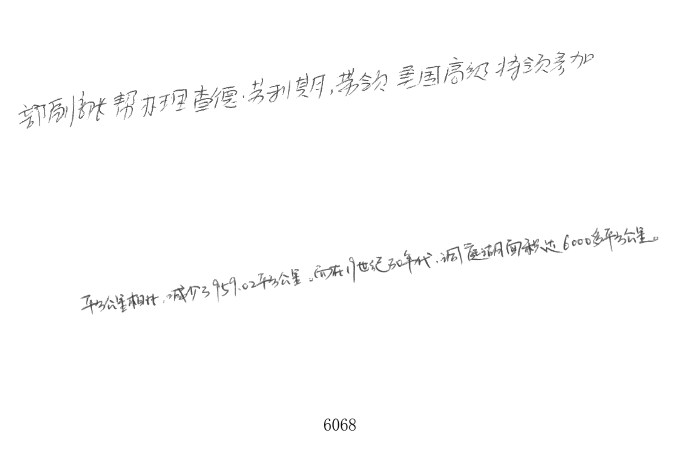 部副部长帮办理查德·劳利斯,带领美国高级将领参加
平方公里相比,减少了959.02平方公里。而在19世纪30年代,洞庭湖面积达6000多平方公里。
6068